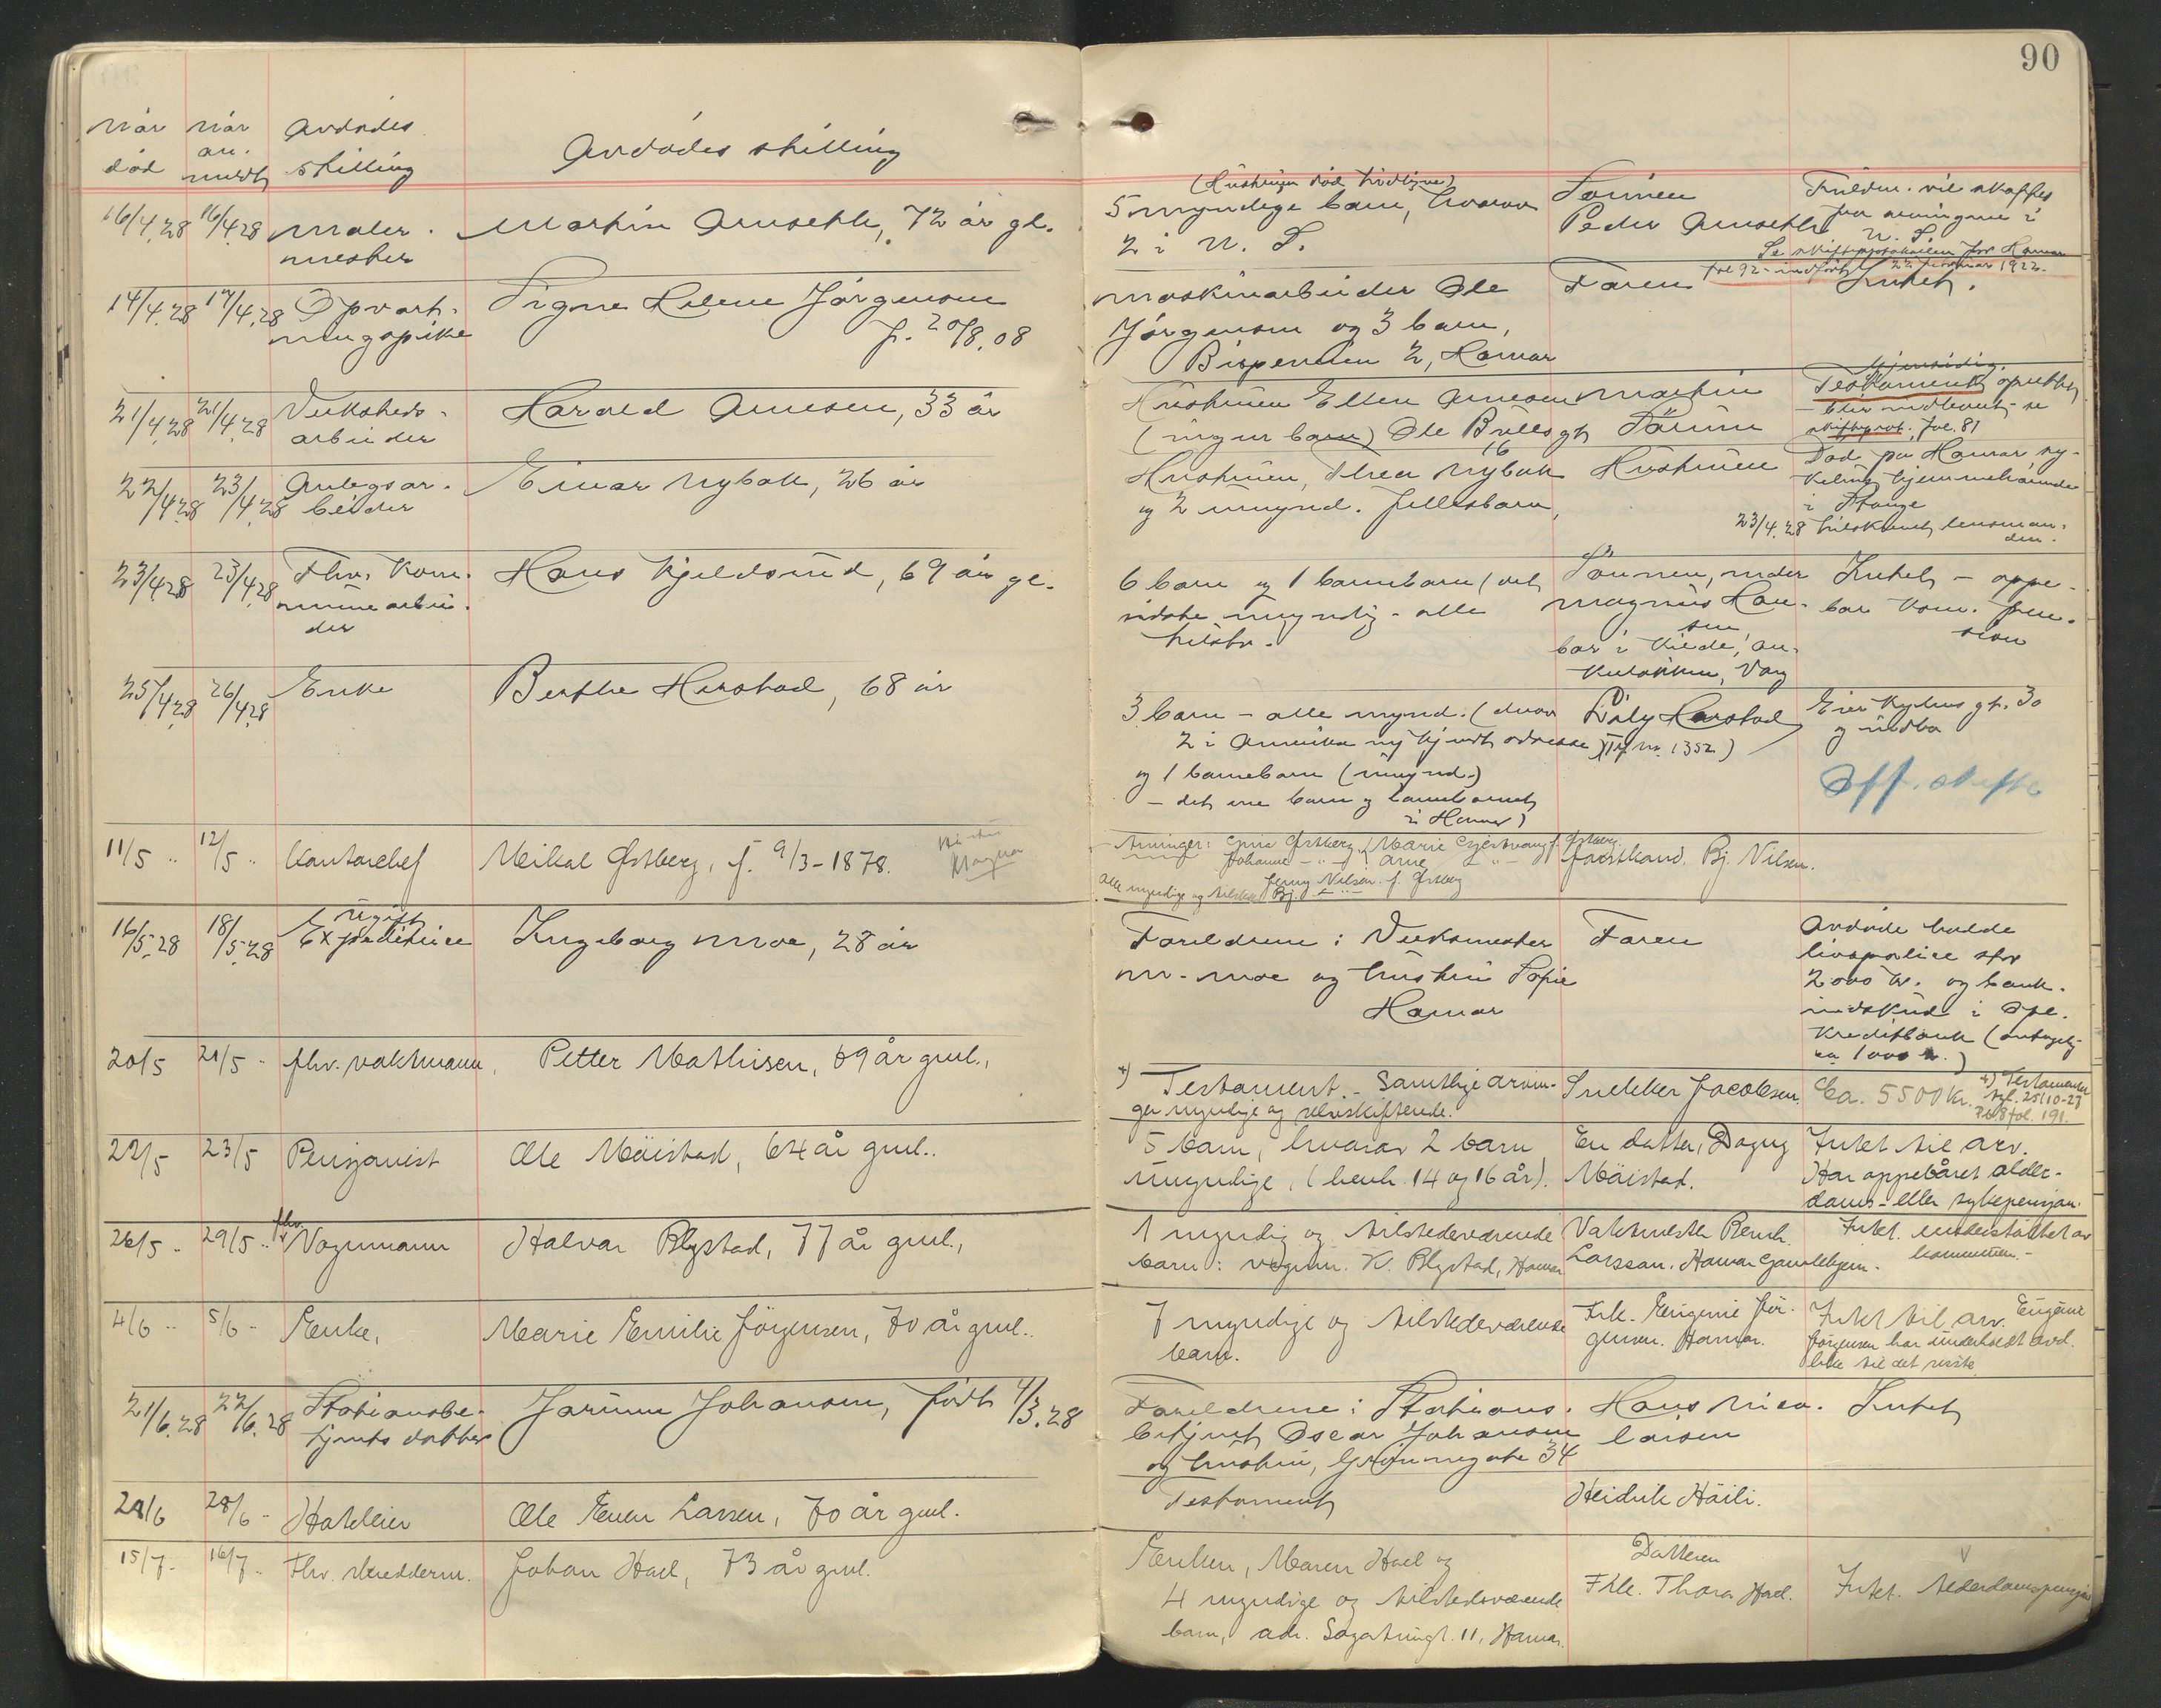 90
Når død
Når an. meldt
Avdødes stilling
Avdødes stilling
16/4.28 16/4.28 Maler- mester
Martin Arnseth, 72 år gl.
(Hustruen død tidligere)
5 myndige barn, hvorav
2 i U. S.
Sønnen
Peder Arnseth
Fuldm. vil skaffes
fra arvingene i
U. S.
Se skifteprotokollen for Hamar
fol 92 - indført 22 februar 1922.
14/4.28 17/4.28 Opvart-
ningspike
Signe Helene Jørgensen
f. 20/8.08
Maskinarbeider Ole
Jørgensen og 3 barn,
Bispeveien 2, Hamar
Faren
Intet.
21/4.28 21/4.28 Verksteds-
arbeider
Harald Arnesen, 33 år
Hustruen Ellen Arnesen
(ingen barn) Ole Bulls gt
16
Martin
Gjensidig
Testament oprettet
- blir indlevert - se
skifteprot. fol. 81
22/4.28 23/4.28 Anlegsar-
beider
Einar Nybak, 26 år
Hustruen, Thea Nybak
og 2 umynd. fellesbarn,
Hustruen
Død på Hamar sy-
kehus hjemmehørende
i Stange
23/4.28 tilskrevet lensman-
den.
23/4.28 23/4.28 Fhv. kom-
munearbei-
der
Hans Kjeldsrud, 69 år gl.
6 barn og 1 barnebarn (det
sidste umyndig - alle
tilste.
Sønnen,
Magnus Han-
sen
bor i Kilde,
Vang
Intet - oppe-
bar kom. pen-
sion
25/4.28 26/4.28 Enke
Berthe Herstad, 68 år
3 barn - alle mynd. (derav
2 i Amerika uj kjendt adresse)
og 1 barnebarn (umynd.)
- det ene barn og barnebarnet
i Hamar)
Herstad
(Tlf. nr. 1352)
Eier Kyhns gt. 30
og indbo
Off. skifte
11/5 .. 12/5 .. Kontorchef
Mikal Østberg, f. 9/3-1878.
Arvinger: Østberg, Marie f. Østberg.
Johanne - " - Arne - " -
Jenny Nilsen f. Østberg
Alle myndige og
forstkand. Bj. Nilsen.
16/5.28 18/5.28 ugift
Expeditrice
Ingeborg Moe, 28 år
Foreldrene: Verksmester
M. Moe og hustru Sofie
Hamar
Faren
Avdøde hadde
livspolice stor
2000 kr. og bank-
indskud i Opl.
Kreditbank (antagelig
ca 1000 kr.)
20/5 21/5 - fhv. vaktmann,
Petter Mathisen, 69 år gml.,
+) Testament. - Samtlige arvin-
ger myndige og selvskiftende.
Snekker Jacobsen.
Ca. 5500 kr.
+) Testamentet
25/10-27
fol. 191.
22/5 23/5 Pensjonist
Ole Møistad, 64 år gml..
5 barn, hvorav 2 barn
umyndige, (henh. 14 og 16 år).
En datter, Dagny
Møistad.
Intet til arv.
Har oppebåret alder-
doms- eller sykepensjon.
26/5 - 29/5 .. fhv.
Vognmann
Halvor Blystad, 77 år gml.,
1 myndig og tilstedeværende
barn: vognm. K. Blystad, Hamar
Vaktmester Bernh.
Larsson. Hamar Gamlehjem.
Intet. understøttet av
kommunen.-
4/6 .. 5/6 - Enke,
Marie Emilie Jörgensen, 70 år gml..
7 myndige og tilstedeværende
barn.
Frk. Eugenie Jör-
gensen. Hamar.
Intet til arv. Eugenie
Jörgensen har underholdt avd.
like til det siste
21/6.28 22/6.28 Stationsbe-
tjents datter
Jorunn Johansen, født 4/3.28
Foreldrene: Stations-
betjent Oscar Johansen
og hustru, Grønnegate 34
Hans Nico-
laisen
Intet
28/6 28/6 - Hoteleier
Ole Even Larsen, 70 år gml.
Testament
Heidrik Häili.
15/7 - 16/7 - Fhv. skredderm.
Johan Hoel, 73 år gml.
Enken, Maren Hoel og
4 myndige og tilstedeværende
barn, adr. 11, Hamar.
Datteren
Frk. Thora Hoel.
Intet. Alderdomspensjon